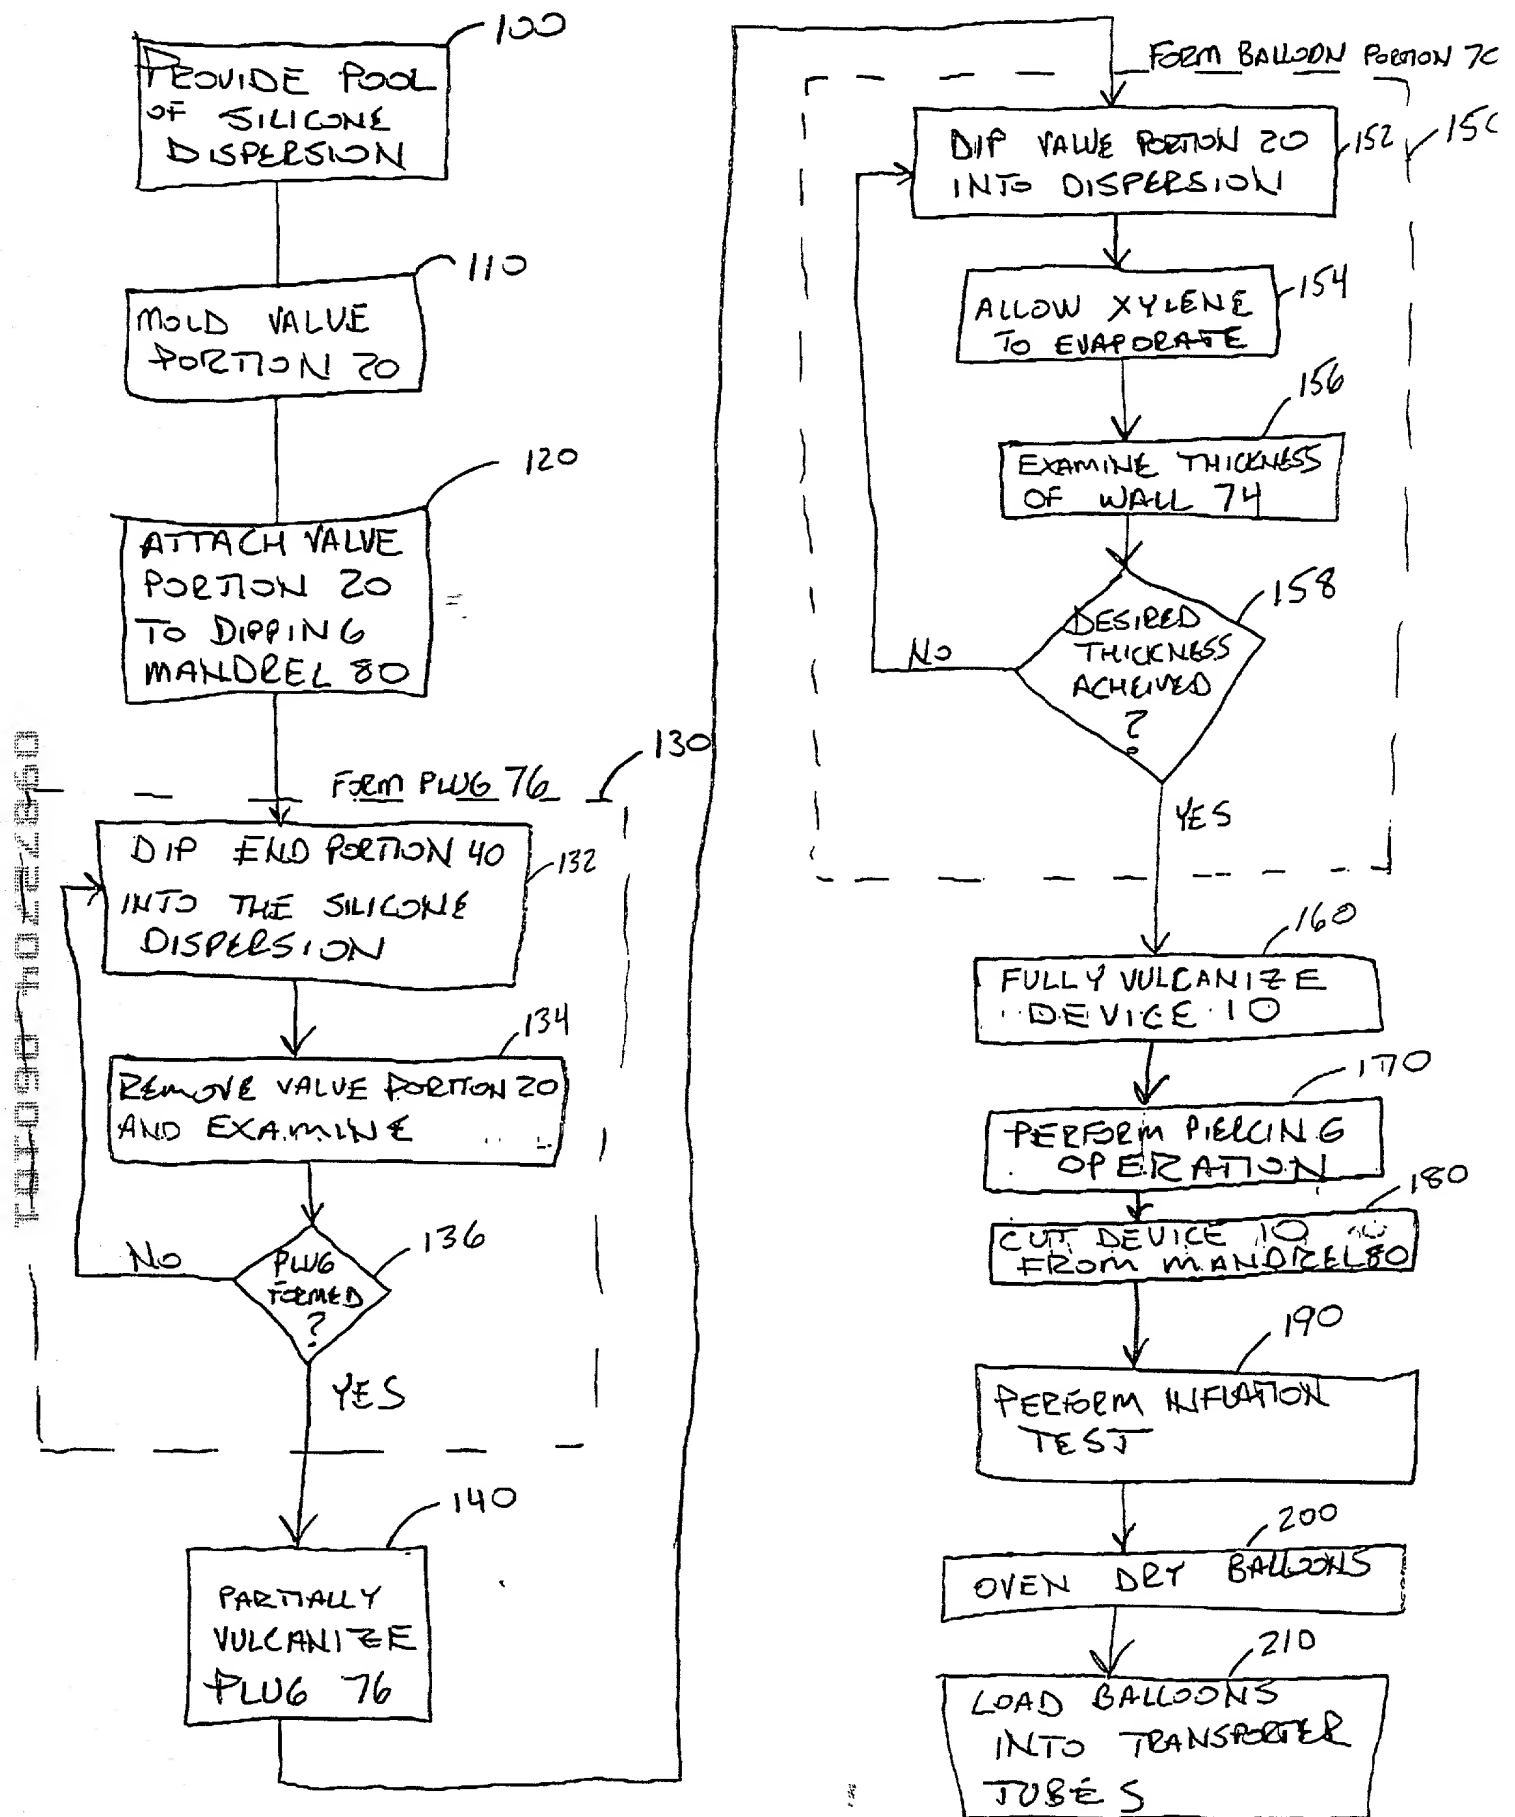 100
PROVIDE POOL
OF SILICONE
DISPERSION
110
MOLD VALUE
PORTION 20
120
ATTACH VALVE
PORTION 20
TO DIPPING
MANDREL 80
130
FORM PLUG 76
DIP END PORTION 40
132
INTO THE SILICONE
DISPERSION
134
REMOVE VALUE PORTION 20
AND EXAMINE
136
PLUG
FORMED
?
NO
YES
140
PARTIALLY
VULCANIZE
PLUG 76
FORM BALLOON PORTION 70
150
DIP VALUE PORTION 20
INTO DISPERSION
152
154
ALLOW XYLENE
TO EVAPORATE
156
EXAMINE THICKNESS
OF WALL 74
158
DESIRED
THICKNESS
ACHEIVED
?
NO
YES
160
FULLY VULCANIZE
DEVICE 10
170
PERFORM PIERCING
OPERATION
180
CUT DEVICE 10
FROM MANDREL 80
190
PERFORM INFLATION
TEST
200
OVEN DRY BALLOONS
210
LOAD BALLOONS
INTO TRANSPORTER
TUBES